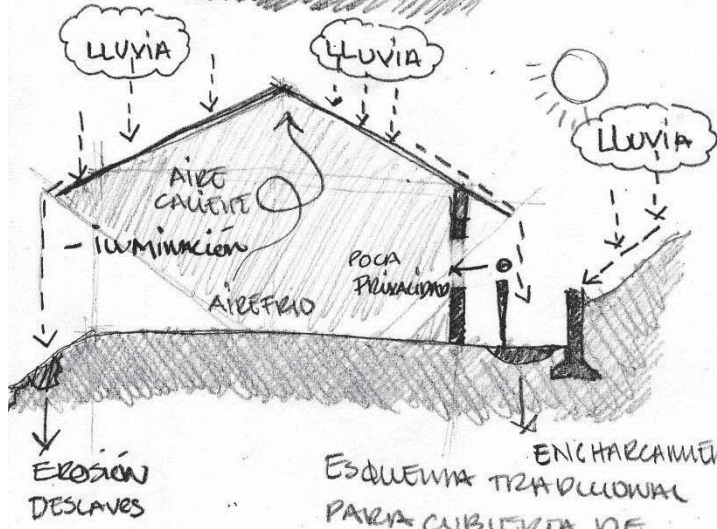 LLUVIA
LLUVIA
LLUVIA
AIRE
CALIENTE
- ILUMINACIÓN
AIRE FRIO
POCA
PRIVACIDAD
EROSIÓN
DESLAVES
ENCHARCAMIE
ESQUEMA TRADICIONAL
PARA CUBIERTA DE